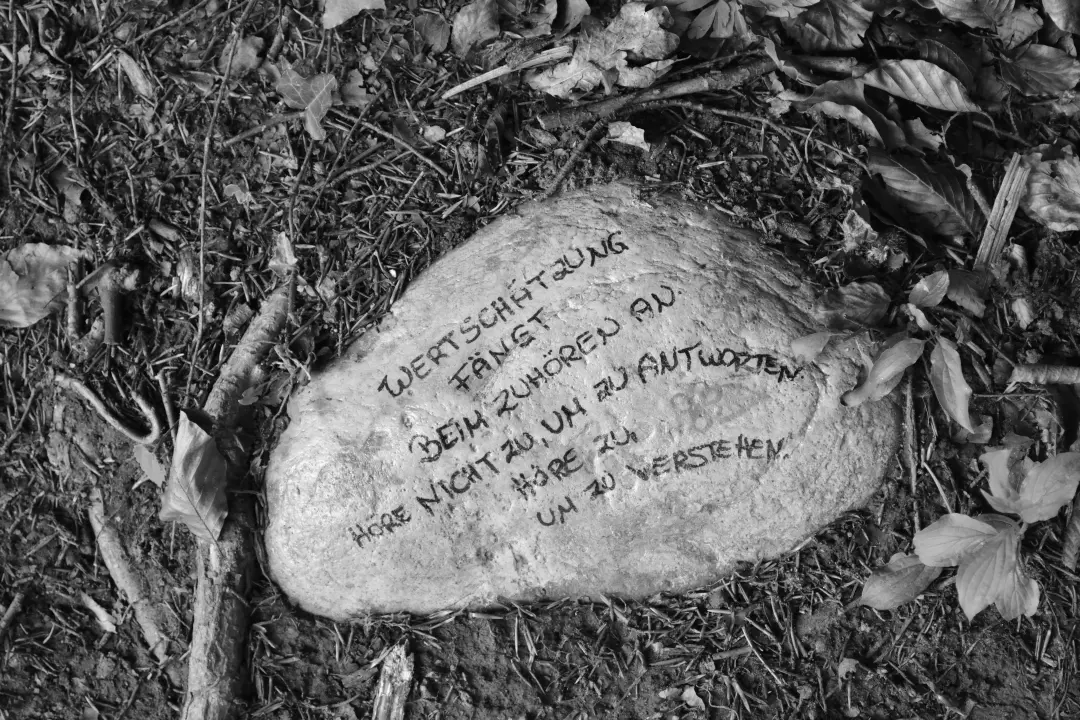 WERTSCHÄTZUNG
FÄNGT
BEIM ZUHÖREN AN.
HÖRE NICHT ZU, UM ZU ANTWORTEN.
HÖRE ZU,
UM ZU VERSTEHEN.